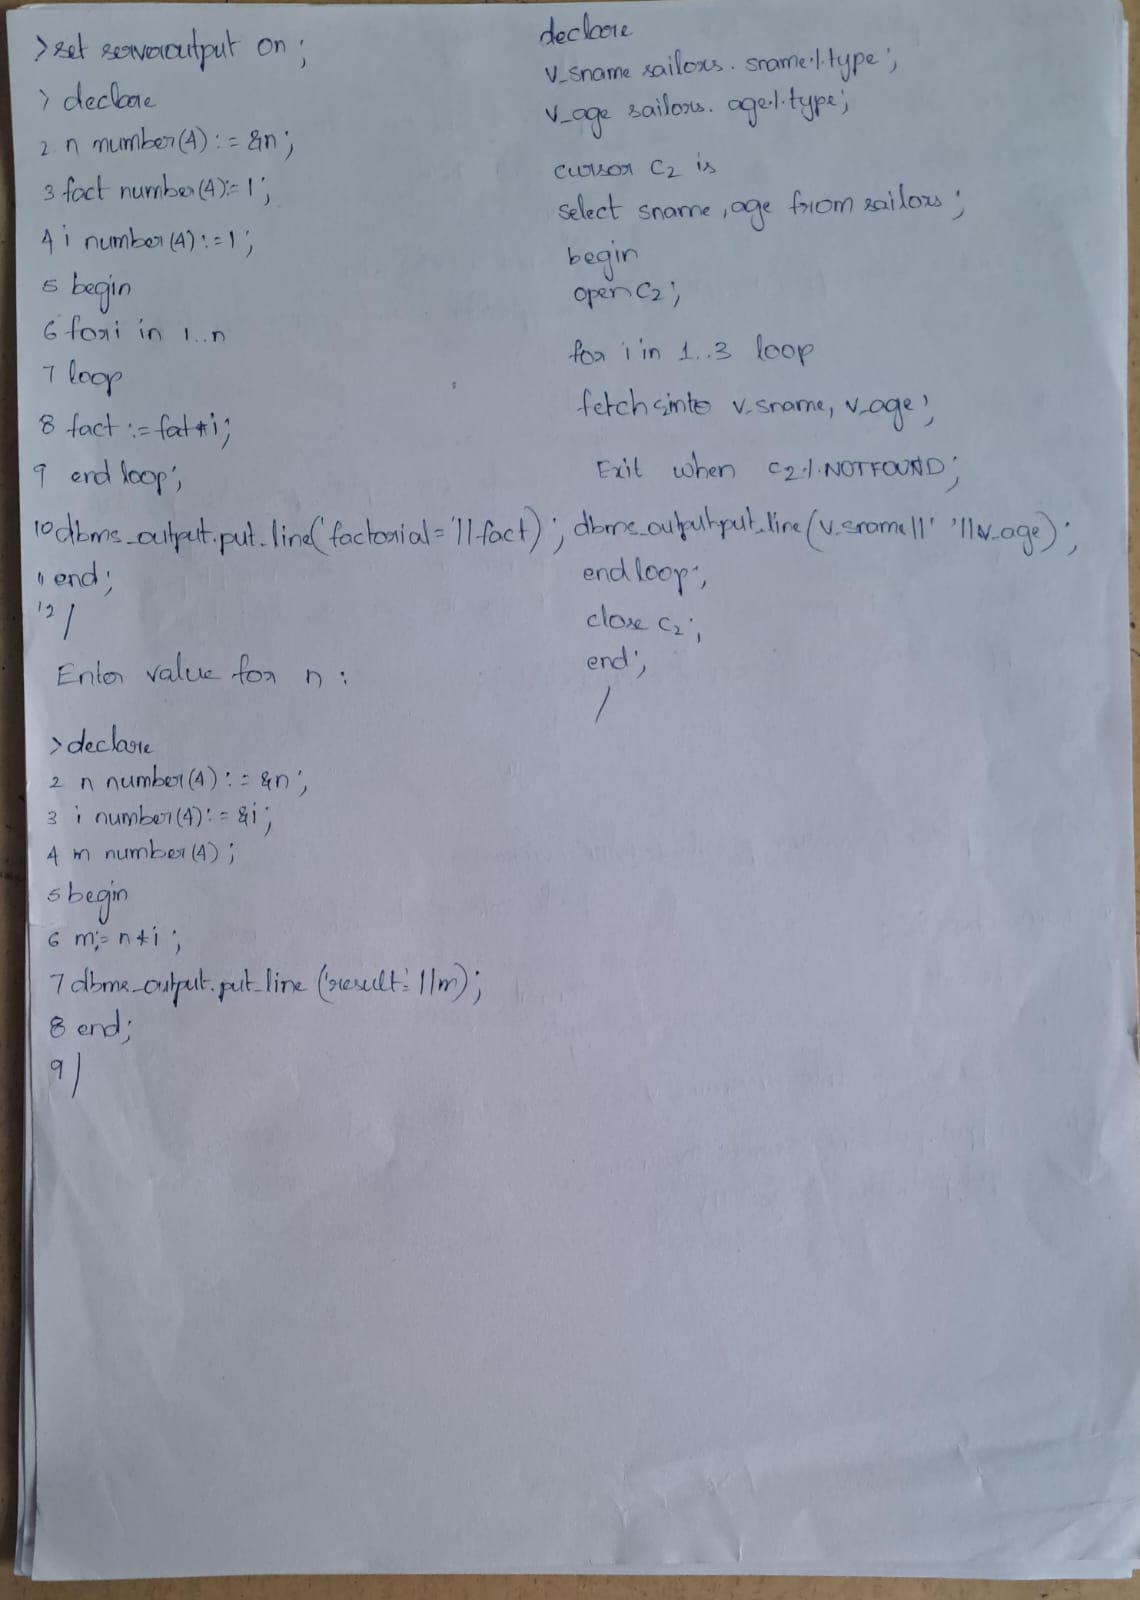 > set serveroutput on ;
> declare
2 n number(4) := &n ;
3 fact number(4):= 1 ;
4 i number(4) :=1 ;
5 begin
6 for i in 1..n
7 loop
8 fact := fat*i;
9 end loop;
10 dbms_output.put_line('factorial='||fact) ;
11 end ;
12 /
Enter value for n :
> declare
2 n number(4) := &n ;
3 i number(4) := &i ;
4 m number(4) ;
5 begin
6 m:= n*i ;
7 dbms_output.put_line ('result:' ||m) ;
8 end ;
9 /
declare
v_sname sailors. sname%type ;
v_age sailors. age%type ;
cursor c2 is
select sname , age from sailors ;
begin
open c2 ;
for i in 1..3 loop
fetch into v_sname, v_age ;
Exit when c2%NOTFOUND ;
dbms_output.put_line (v_sname||' '||v_age) ;
end loop ;
close c2 ;
end ;
/